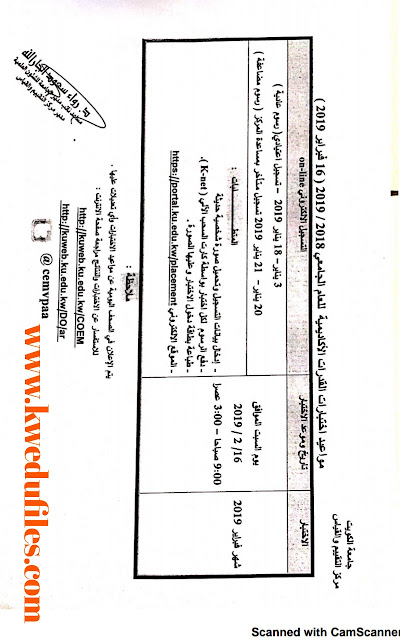 جامعة الكويت
مركز التقييم والقياس
مواعيد اختبارات القدرات الأكاديمية للعام الجامعي 2018 / 2019 ( 16 فبراير 2019 )
الاختبار
تاريخ وموعد الاختبار
التسجيل الالكتروني on-line
شهر فبراير 2019
يوم السبت الموافق
16/ 2 / 2019
9:00 صباحا – 3:00 عصرا
3 يناير – 18 يناير 2019 – تسجيل اعتيادي( رسوم عادية )
20 يناير – 21 يناير 2019 تسجيل متأخر بمساعدة المركز ( رسوم مضاعفة )
المتطلبات :
- إدخال بيانات التسجيل وتحميل صورة شخصية حديثة
- دفع الرسوم لكل اختبار بواسطة كارت السحب الآلي (K-net).
- طباعة بطاقة دخول الاختبار وعليها الصورة .
- الموقع الالكتروني https://portal.ku.edu.kw/placement
ملاحظة :
يتم الإعلان في الصحف اليومية عن مواعيد الاختبارات وأي تعديلات عليها .
للاستفسار عن الاختبارات والنتائج مراجعة صفحة الانترنت :
http://kuweb.ku.edu.kw/COEM
http://kuweb.ku.edu.kw/DO/ar
@ cemvpaa
مدير مركز التقييم والقياس
www.kwedufiles.com
Scanned with CamScanner